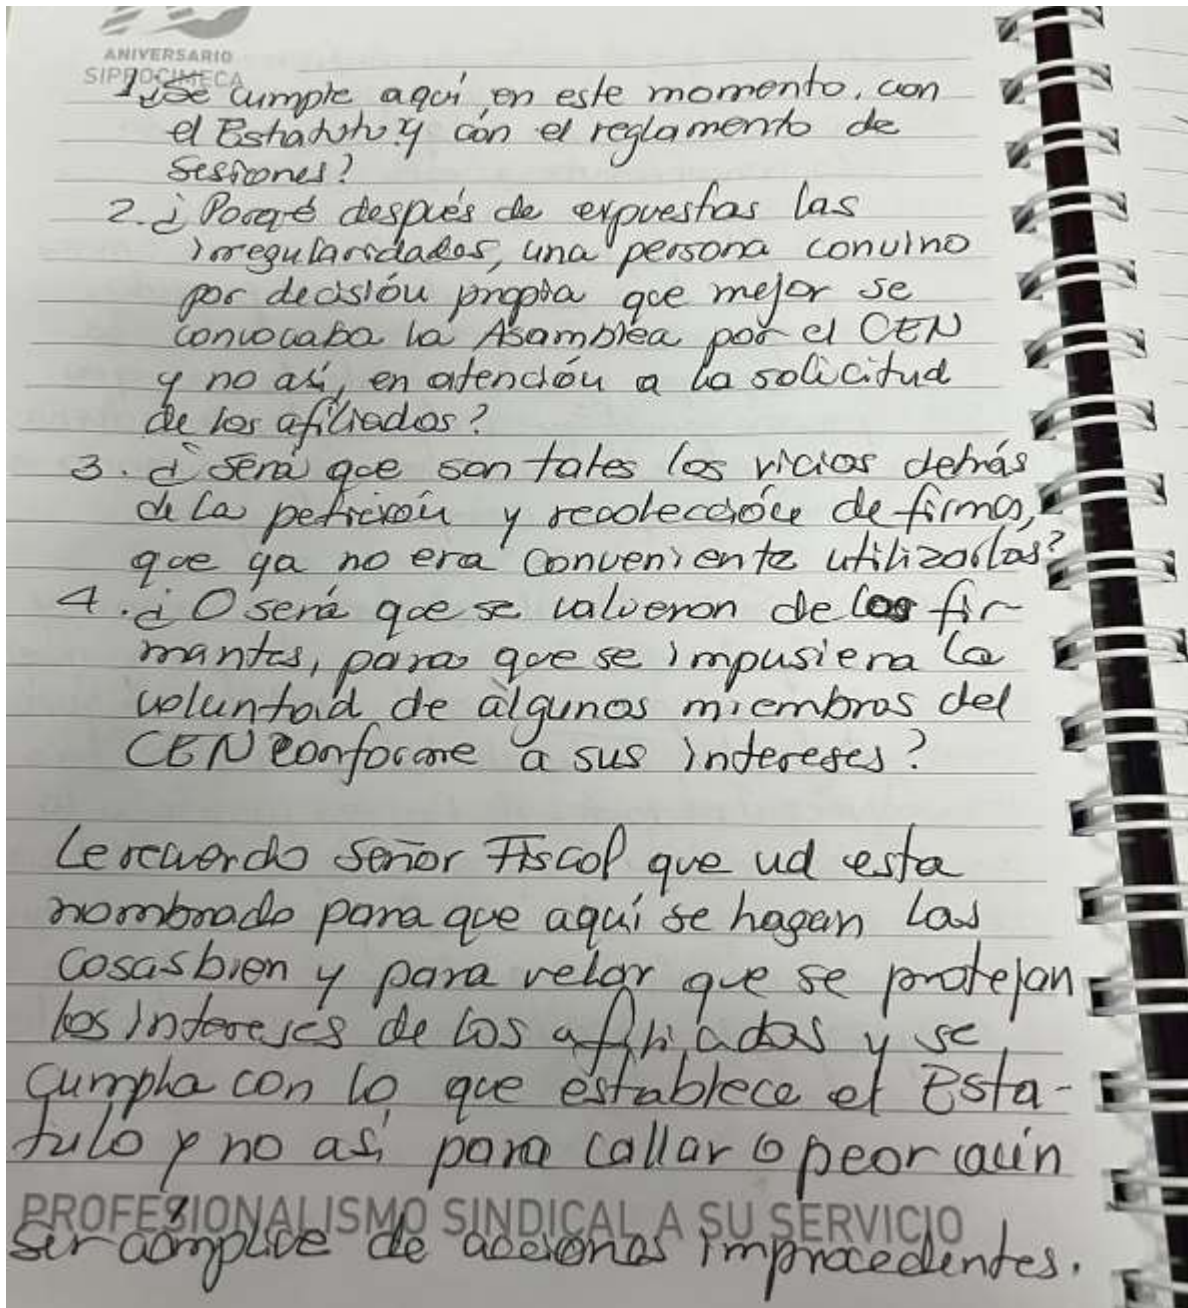 ANIVERSARIO
SIPROCIMECA
1. ¿Se cumple aquí en este momento, con
el Estatuto y con el reglamento de
Sesiones?
2. ¿Porqué después de expuestas las
irregularidades, una persona convino
por decisión propia que mejor se
convocaba la Asamblea por el CEN
y no así, en atención a la solicitud
de los afiliados?
3. ¿Será que son tales los vicios detrás
de la petición y recolección de firmas,
que ya no era conveniente utilizarlas?
4. ¿O será que se valieron de los fir-
mantes, para que se impusiera la
voluntad de algunos miembros del
CEN conforme a sus intereses?
Le recuerdo señor Fiscal que ud esta
nombrado para que aquí se hagan las
cosas bien y para velar que se protejan
los intereses de los afiliados y se
cumpla con lo que establece el Esta-
tuto y no así para callar o peor aún
PROFESIONALISMO SINDICAL A SU SERVICIO
ser cómplice de acciones improcedentes.